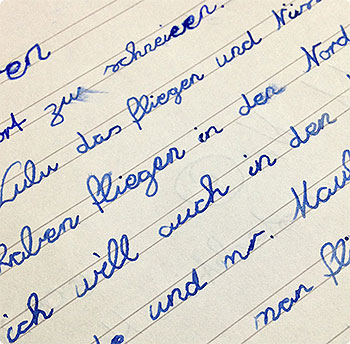 en
ort zu schreieen.
Lulu das fliegen und Nüs
raben fliegen in den Nord
ich will auch in den
und mr. Mau
man fli